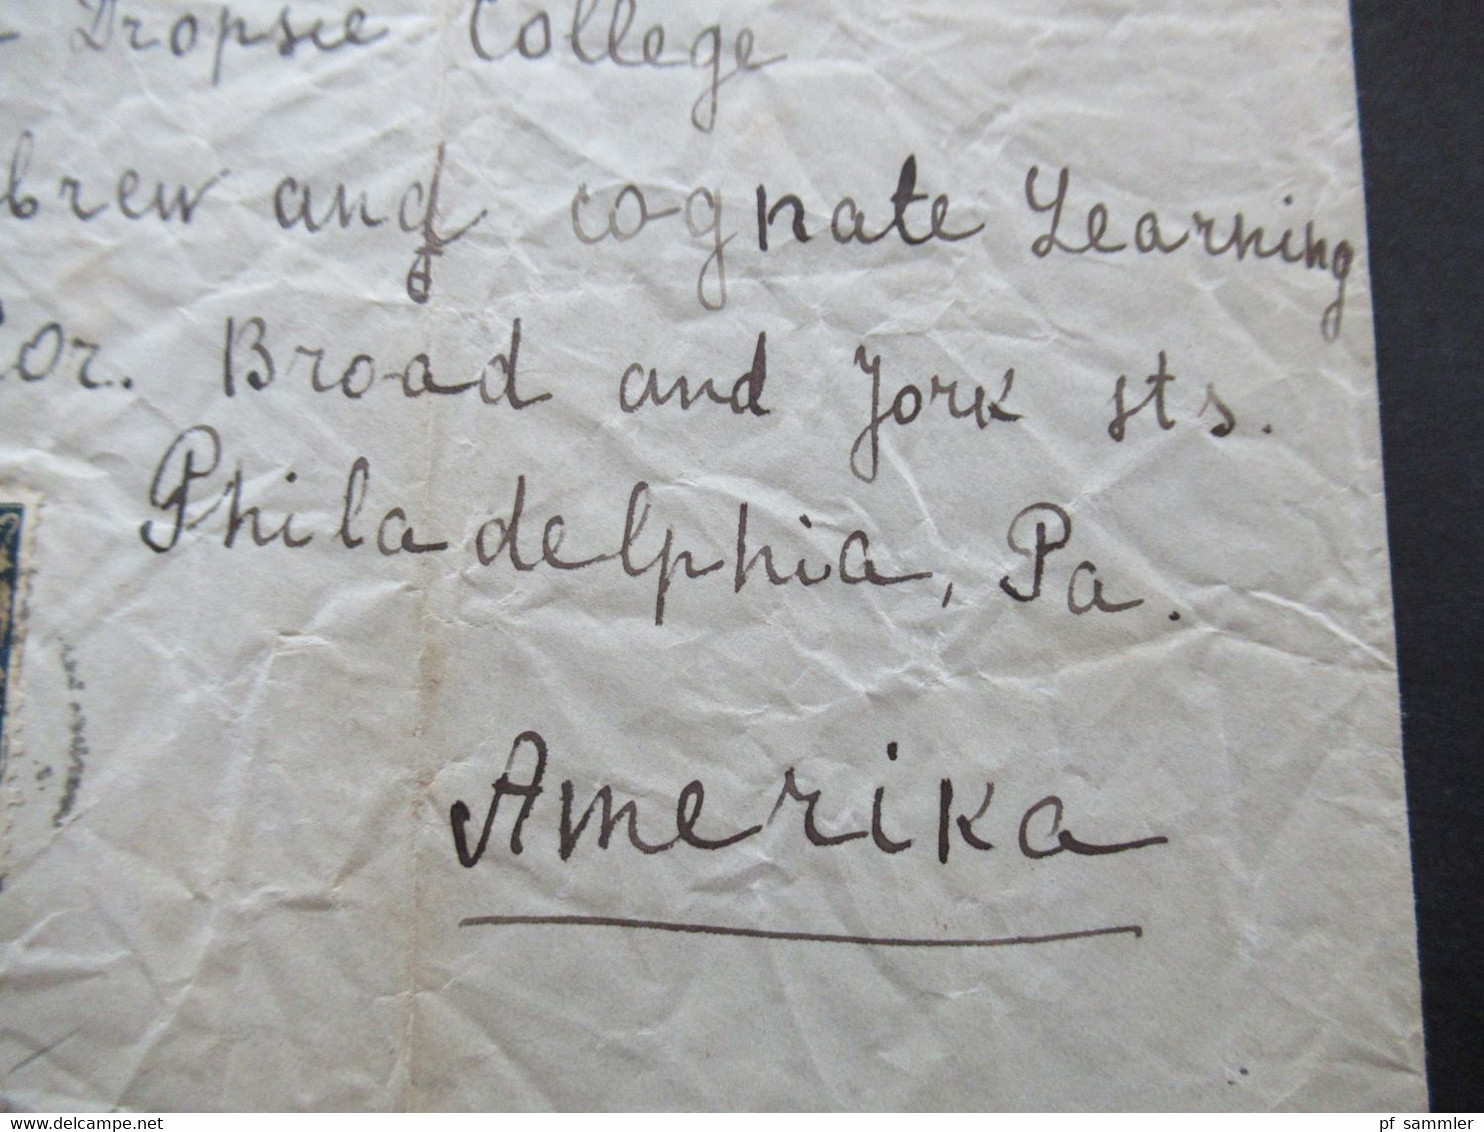 - Dropsie College
brew and cognate Learning
Cor. Broad and York sts.
Philadelphia, Pa.
Amerika
delcampe.net
pf_sammler